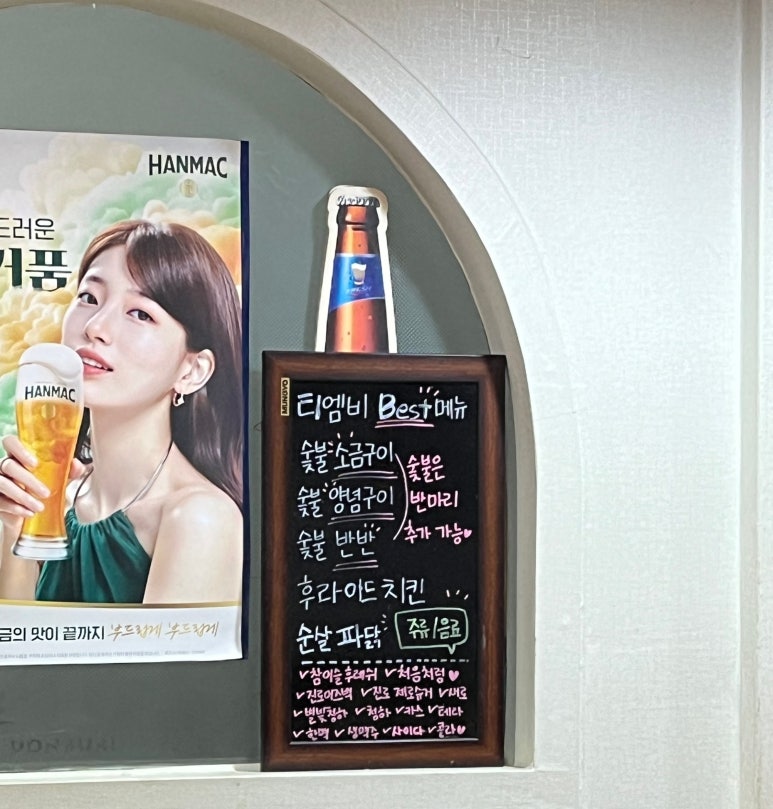 HANMAC
드러운
거품
HANMAC
금의 맛이 끝까지 부드럽게 부드럽게
티엠비 Best 메뉴
숯불 소금구이
숯불 양념구이
숯불 반반
숯불은
반마리
추가 가능♥
후라이드 치킨
순살 파닭
주류/음료
✓참이슬후레쉬 ✓처음처럼♥
✓진로이즈백 ✓진로 제로슈거 ✓새로
✓별빛청하 ✓청하 ✓카스 ✓테라
✓한맥 ✓생맥주 ✓사이다 ✓콜라♥